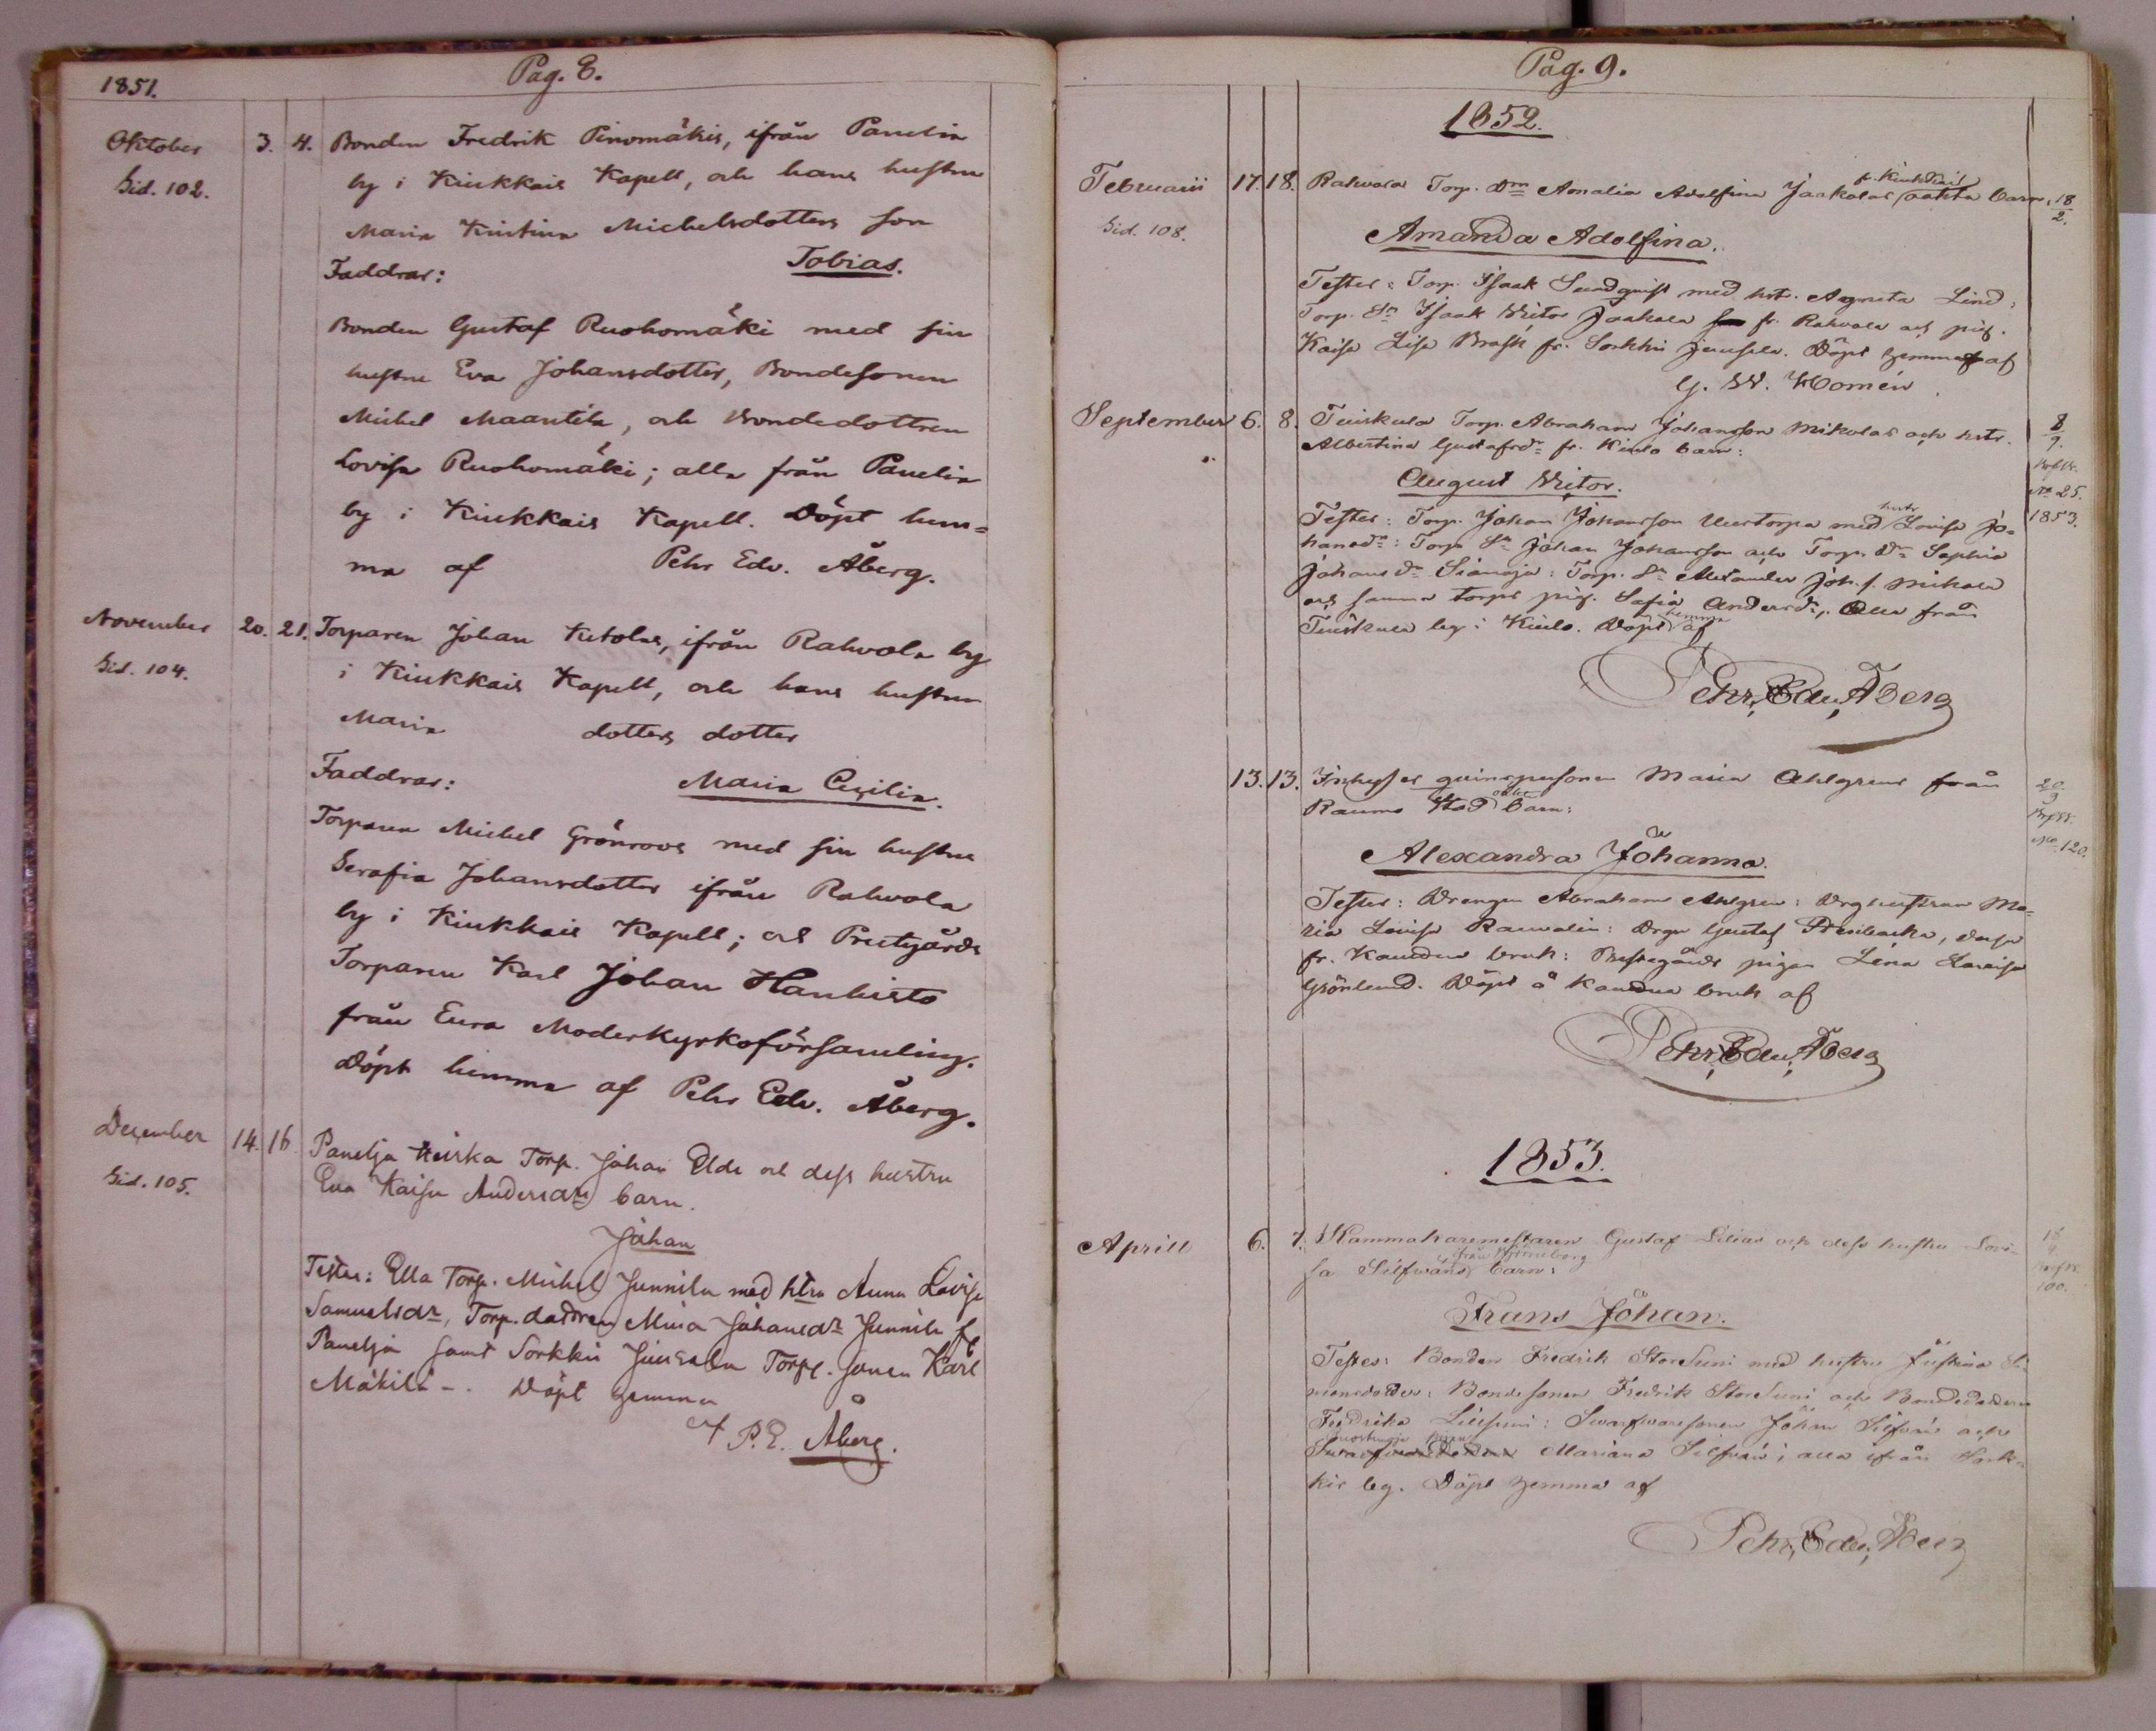 1851.
Pag. 8.
Oktober 3. 4. Bonden Fredrik Pinomäkis, ifrån Panelia
Sid. 102. by i Kiukkais Kapell, och hans hustru
Maria Kristina Michelsdotters son
Faddrar: Tobias.
Bonden Gustaf Ruohomäki med sin
hustru Eva Johansdotter, Bondesonen
Michel Maantila, och Bondedottren
Lovisa Ruohomäki; alla från Panelia
by i Kiukkais Kapell. Döpt hem=
ma af Pehr Edv. Åberg.
November 20. 21. Torparen Johan Ketolas, ifrån Rahvola by
Sid. 104. i Kiukkais Kapell, och hans hustru
Maria dotters dotter
Faddrar: Maria Cecilia.
Torparen Michel Grönroos med sin hustru
Serafia Johansdotter ifrån Rahvola
by i Kiukkais Kapell; och Prestgårds
Torparen Karl Johan Hanhisto
från Eura Moderkyrkoförsamling.
Döpt hemma af Pehr Edv. Åberg.
December 14. 16 Panelja Torp. Johan Elds och dess hustru
Sid. 105. Eva Kaisa Andersdrs barn.
Johan
Testes: Ella Torp. Michel Junnila med hstru Anna Lovisa
Samuelsdr, Torp. dottren Mina Johansdr Junnila fr
Panelja samt Sorkkis Juusela Torps. sonen Karl
Mäkilä -. Döpt hemma
af P. E. Åberg.
Pag. 9.
1852.
fr. Kiukkais
Februarii 17. 18. Rahvola Torp. Drn Amalia Adolfina Jaakolas oäkta barn, 18/2.
Sid. 108. Amanda Adolfina.
Testes: Torp. Isaak Sundquist med hst. Agneta Lind,
Torp. Sn Isaak Victor Jaakola fr. Rahvola och pig.
Kaisa Lisa Brask fr. Sorkkis Juusela. Döpt hemma af
G. W. Homén
September 6. 8. Tuiskula Torp. Abraham Johansson Mikolas och hstr. 8/9.
Albertina Gustafsdr fr. Kiulo barn:
August Victor. No 25.
hustr 1853.
Testes: Torp. Johan Johansson Uustorpa med Lovisa Jo=
hansdr: Torp. Sn Johan Johansson och Torp. Dr Sophia
Johansdr Sianoja: Torp. Sn Alexander Joh. s. Mikola
och samma torps pig. Sofia Andersdr. Alla från
hemma
Tuiskula by i Kiulo. Döpt af
Pehr, Edv, Åberg
13. 13. Inhyses qvinspersonen Maria Ahlgrens från 20/9
oäkta
Raumo Stad barn:
No. 120.
Alexandra Johanna.
Testes: Drengen Abraham Ahlgren: Drghustrun Ma=
ria Lovisa Rauvalin: Drgn Gustaf
fr. Kauttua bruk: Prestgårds pigan Lena Lovisa
Grönlund. Döpt å Kauttua bruk af
Pehr, Edv, Åberg
1853.
Aprill 6. 7. Kammakaremestaren Gustaf Lilias och dess hustru Lovi=
ifrån Björneborg
sa Silfvéns barn: 100.
Frans Johan.
Testes: Bonden Fredrik StoreSuni med hustru Justina Si=
monsdotter: Bondesonen Fredrik StoreSuni och Bondedottern
Fredrika LilleSuni: Swarfwaresonen Johan Silfvén och
Mariana Silfvén; alla ifrån Sork=
kis by. Döpt hemma af
Pehr, Edv, Åberg